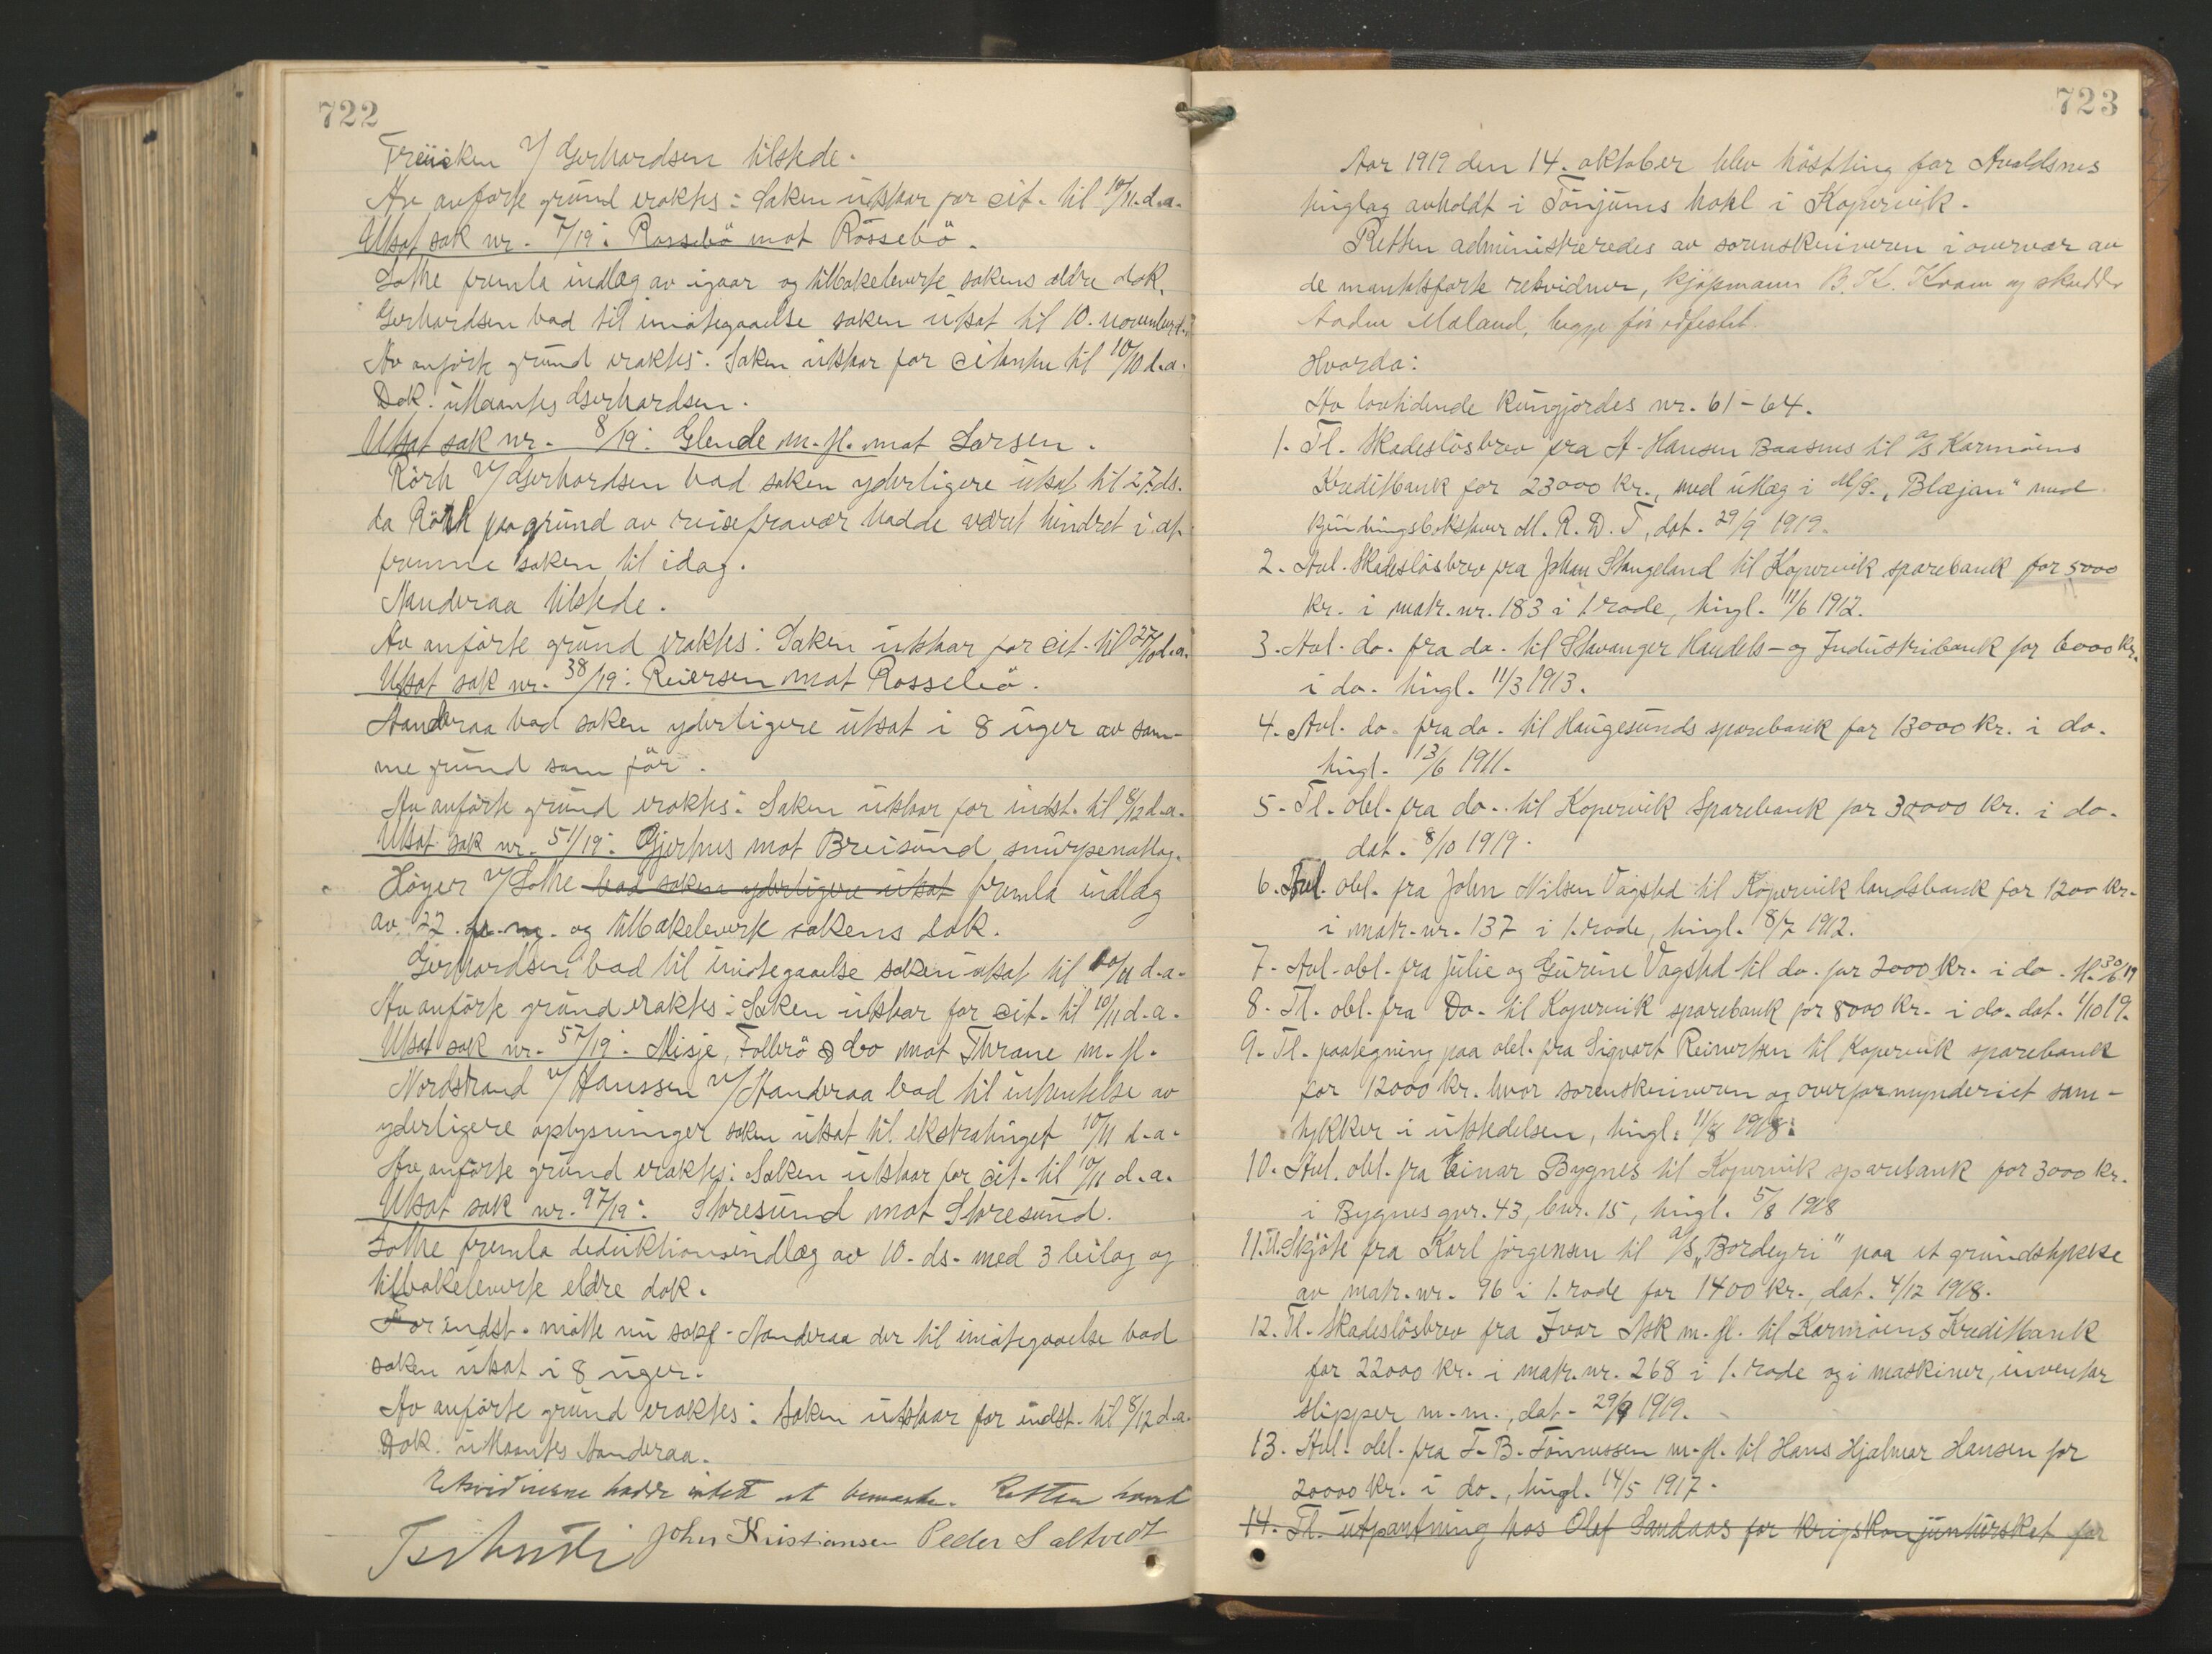 722
Freuchen v/ Gerhardsen tilstede.
Av anførte grund eraktes: Saken utstaar for cit. til 10/11 d.a.
Utsat sak nr. 7/19: Rossebø mot Rossebø.
Lothe fremla indlæg av igaar og tilbakeleverte sakens ældre dok.
Gerhardsen bad til imøtegaaelse saken utsat til 10. november d.a.
Av anførte grund eraktes: Saken utstaar for citanten til 10/10 d.a.
Dok. utlaantes Gerhardsen.
Utsat sak nr. 8/19: Glende m.fl. mot Larsen.
Rørth v/ Gerhardsen bad saken yderligere utsat til 27. ds.
da Rørth paa grund av reisefravær hadde været hindret i at
fremme saken til idag.
Nanderaa tilstede.
Av anførte grund eraktes: Saken utstaar for cit. til 27/10 d.a.
Utsat sak nr. 38/19: Reiersen mot Rossebø.
Nanderaa bad saken yderligere utsat i 8 uger av sam-
me grund som før.
Av anførte grund eraktes: Saken utstaar for indst. til 8/12 d.a.
Utsat sak nr. 51/19: Gjerhus mot Breisund snurpenotlag.
Høyer v/ Lothe bad saken yderligere utsat fremla indlæg
av 22. f.m. og tilbakeleverte sakens dok.
Gerhardsen bad til imøtegaaelse saken utsat til 10/11 d.a.
Av anførte grund eraktes: Saken utstaar for cit. til 10/11 d.a.
Utsat sak nr. 57/19: Misje, Follerø & Co mot Thrane m.fl.
Nordstrand v/ Hanssen v/ Nanderaa bad til inhentelse av
yderligere oplysninger saken utsat til ekstratinget 10/11 d.a.
Av anførte grund eraktes: Saken utstaar for cit. til 10/11 d.a.
Utsat sak nr. 97/19: Storesund mot Storesund.
Lothe fremla deduktionsindlæg av 10. ds. med 3 bilag og
tilbakeleverte eldre dok.
For indst. møtte nu sakf. Nanderaa der til imøtegaaelse bad
saken utsat i 8 uger.
Av anførte grund eraktes: Saken utstaar for indst. til 8/12 d.a.
Dok. utlaantes Nanderaa.
Retsvidnerne hadde intet at bemerke. Retten hævet
John Kristiansen Peder Saltvedt
723
Aar 1919 den 14. oktober blev høstting for Avaldsnes
tinglag avholdt i Tønjums hotel i Kopervik.
Retten administreredes av sorenskriveren i overvær av
de mandtalsførte retsvidner, kjøpmann B. K. Kram og skredder
Aadne Mæland, begge før edfestet.
Hvorda:
Av lovtidende kungjordes nr. 61-64.
1. Tl. Skadesløsbrev fra A. Hansen Baasnes til a/s Karmøens
Kreditbank for 23000 kr., med utlæg i M/S. "Blæjan" med
kjendingsbokstaver M. R. D. T, dat. 29/9 1919.
2. Avl. Skadesløsbrev fra Johan Stangeland til Kopervik sparebank for 5000
kr. i matr. nr. 183 i 1. rode, tingl. 11/6 1912.
3. Avl. do. fra do. til Stavanger Handels- og Industribank for 6000 kr.
i do. tingl. 11/3 1913.
4. Avl. do. fra do. til Haugesunds sparebank for 13000 kr. i do.
tingl. 13/6 1911.
5. Tl. obl. fra do. til Kopervik Sparebank for 30000 kr. i do.
dat. 8/10 1919.
6. Avl. obl. fra John Nilsen Vagsted til Kopervik landsbank for 1200 kr.
i matr. nr. 137 i 1. rode, tingl. 8/7 1912.
7. Avl. obl. fra Julie og Gurine Vagsted til do. for 2000 kr. i do. tl. 30/6 19
8. Tl. obl. fra Do. til Kopervik sparebank for 8000 kr. i do. dat. 1/10 19.
9. Tl. paategning paa obl. fra Sigvart Reinertsen til Kopervik sparebank
for 12000 kr. hvor sorenskriveren og overformynderiet sam-
tykker i utstedelsen, tingl. 11/8 1908.
10. Avl. obl. fra Einar Bygnes til Kopervik sparebank for 3000 kr.
i Bygnes gnr. 43, bnr. 15, tingl. 5/8 1908
11. Tl. Skjøte fra Karl Jørgensen til a/s "Bordeyri" paa et grundstykke
av matr. nr. 96 i 1. rode for 1400 kr., dat. 4/12 1918.
12. Tl. Skadesløsbrev fra Ivar Ask m.fl. til Karmøens Kreditbank
for 22000 kr. i matr. nr. 268 i 1. rode og i maskiner, inventar
slipper m.m., dat. 29/9 1919.
13. Avl. obl. fra T. B. Tønnessen m.fl. til Hans Hjalmar Hansen for
20000 kr. i do., tingl. 14/5 1917.
14. Tl. utpantning hos Olaf Sandaas for krigskonjunkturskat for